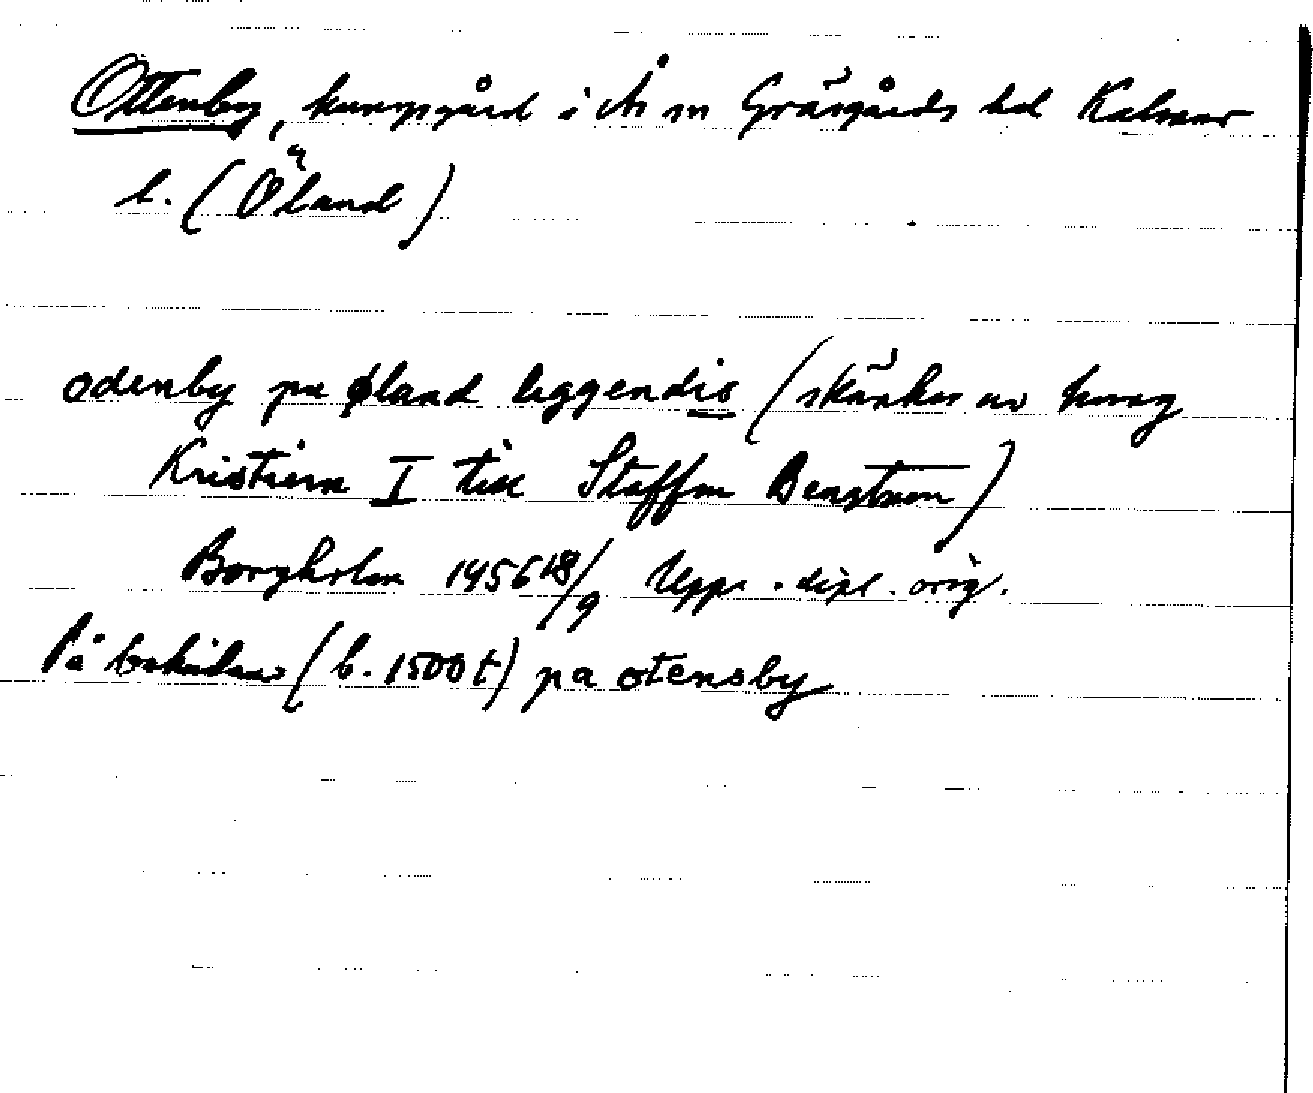 Ottenby, kungsgård i Ås sn Gräsgårds hd Kalmar
l. (Öland)
odenby pa øland liggendis (skänkes av kung
Kristiern I till Staffan Bengtsson)
Borgholm 1456 18/9 Upps. dipl. orig.
På baksidan (b. 1500 t) pa otensby